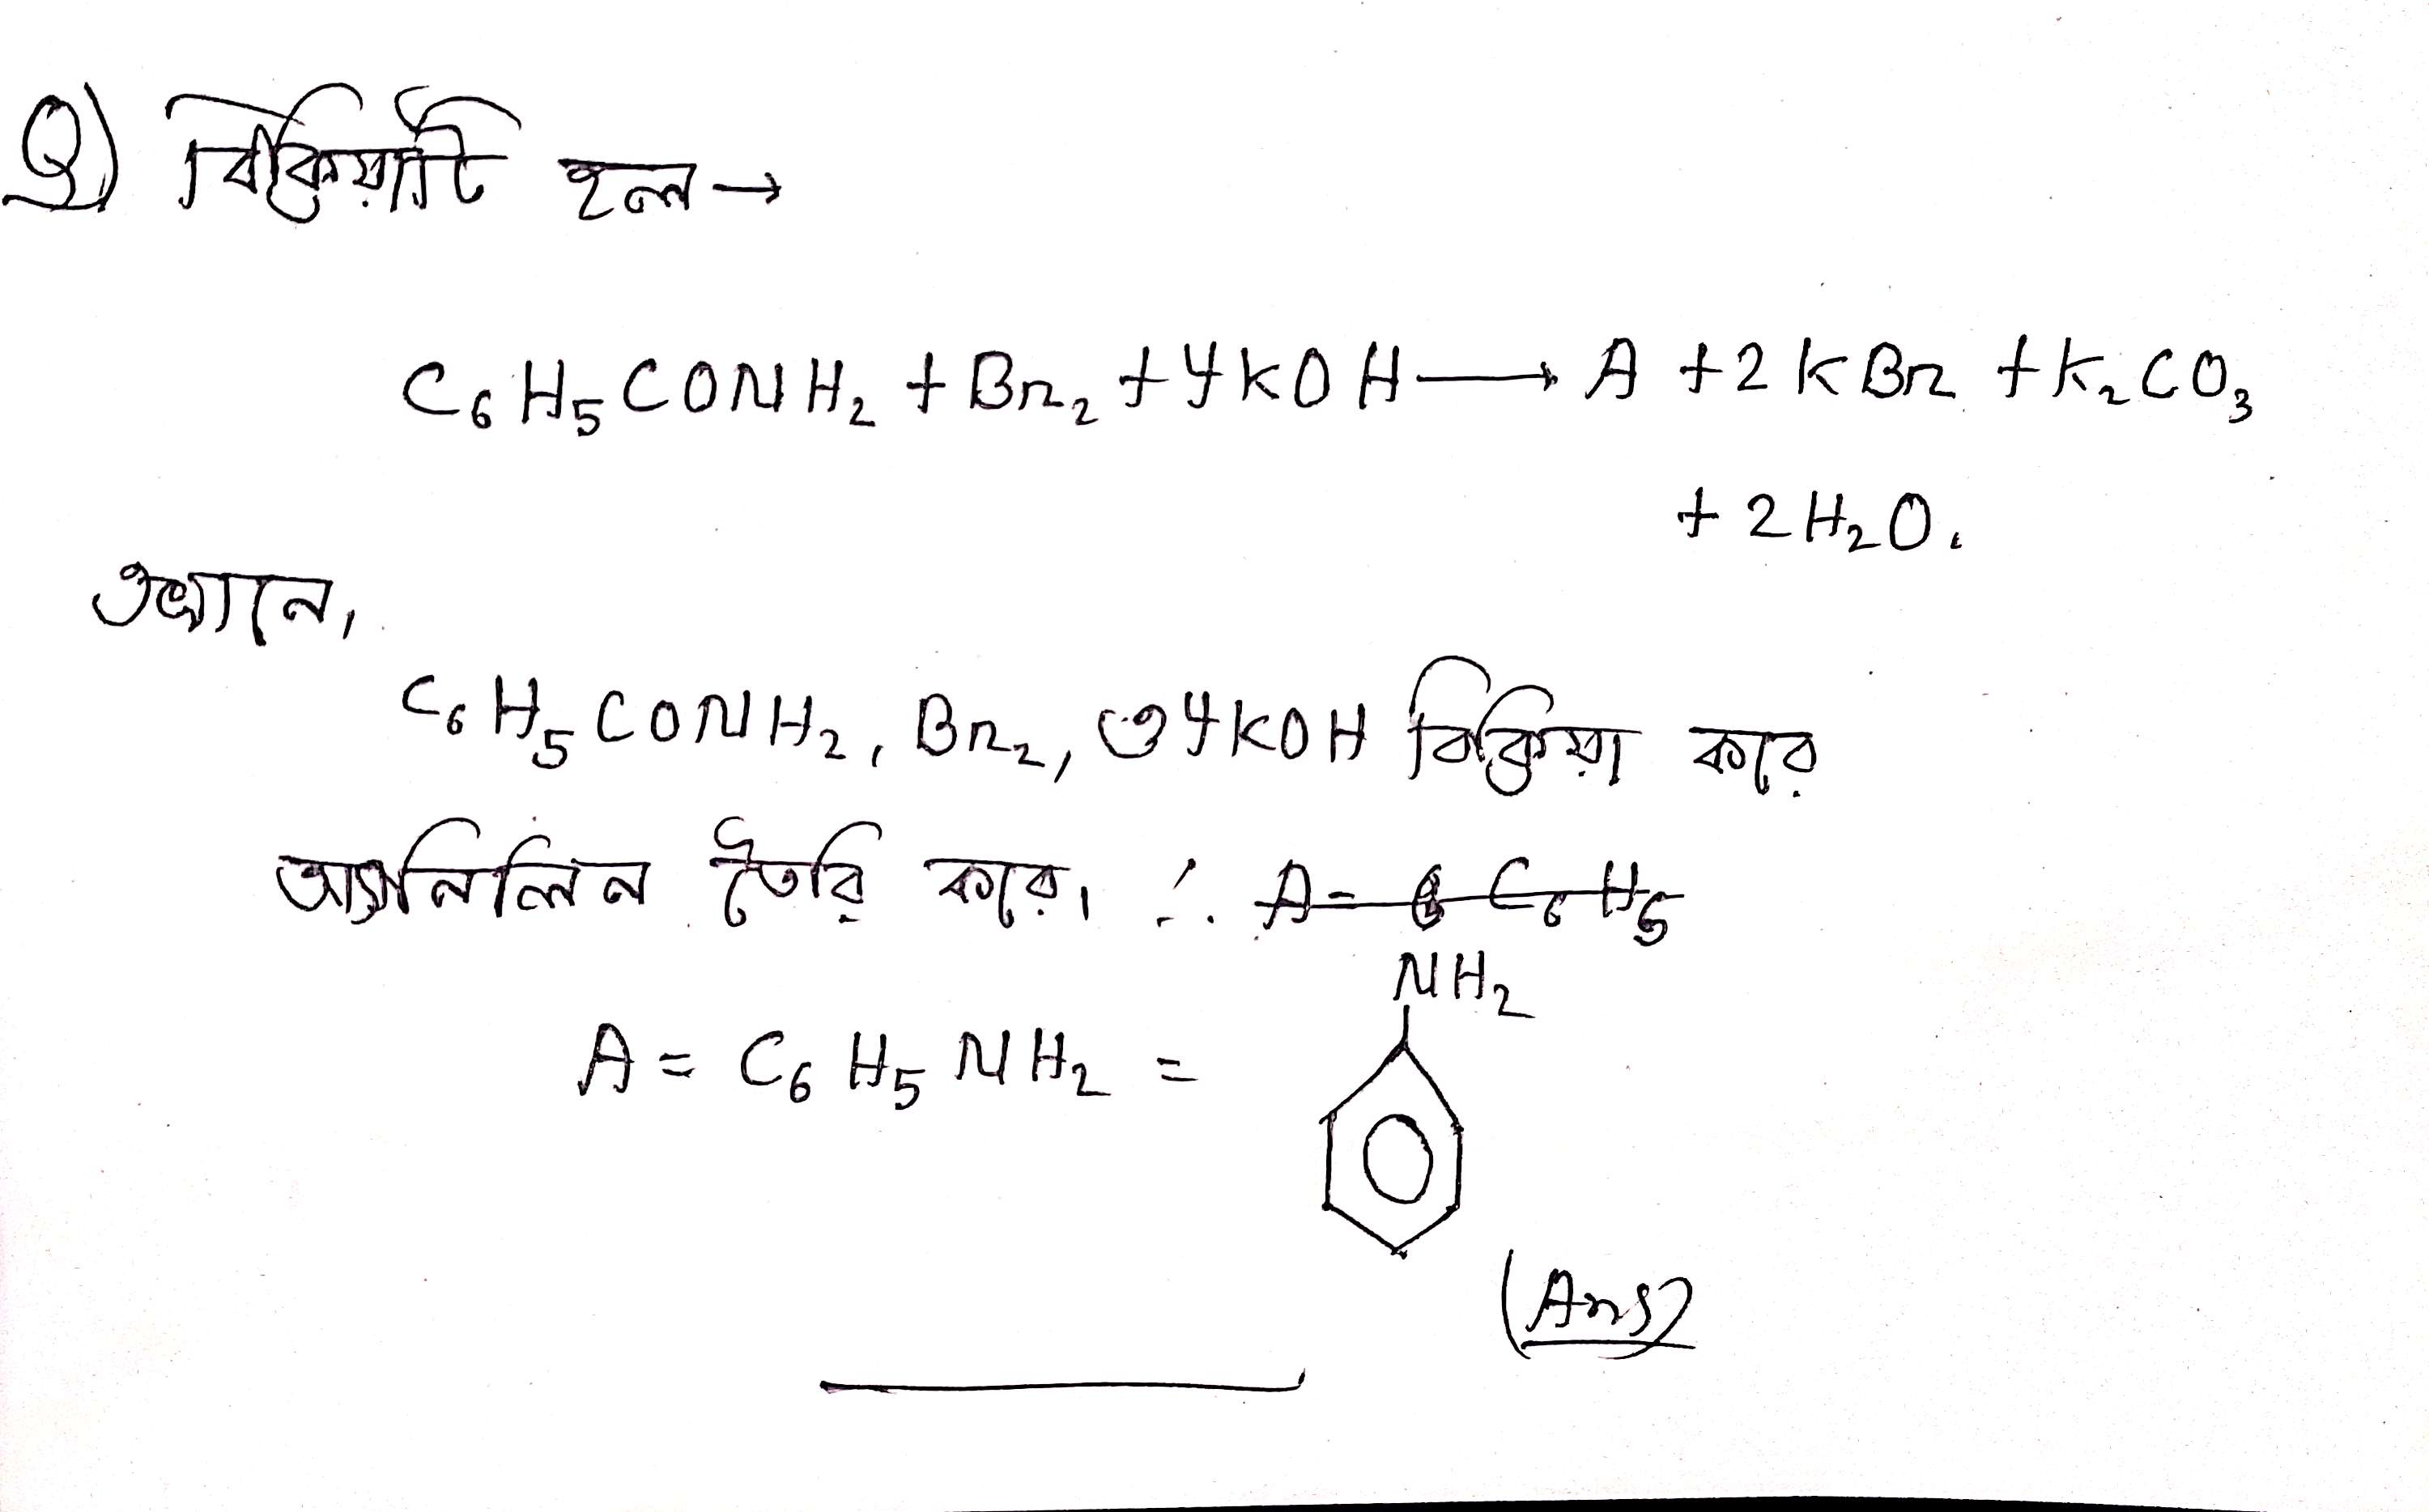 ২) বিক্রিয়াটি হল →
C₆H₅CONH₂ + Br₂ + 4KOH → A + 2KBr + K₂CO₃
+ 2H₂O.
এখানে,
C₆H₅CONH₂, Br₂, ও 4KOH বিক্রিয়া করে
অ্যানিলিন তৈরি করে। ∴ A = C₆H₅
NH₂
A = C₆H₅NH₂ =
(Ans)